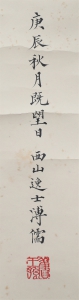 庚辰秋月既望日西山逸士溥儒